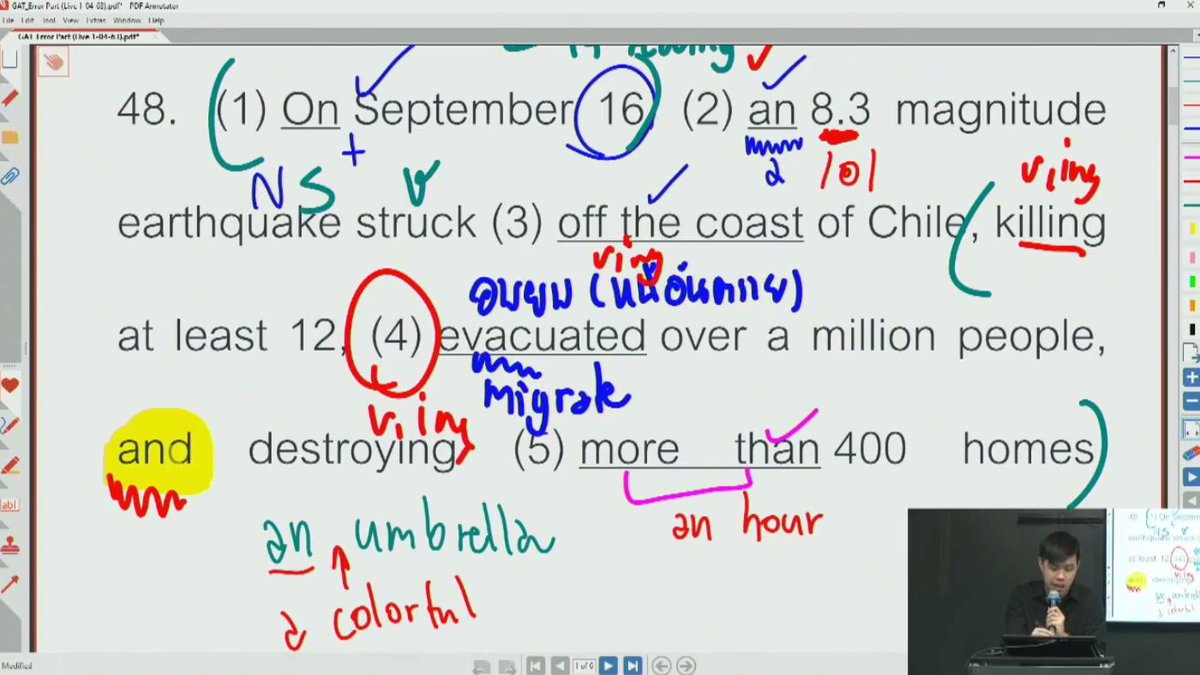 GAT_Error Part (Live 1-04-63).pdf* - PDF Annotator
File Edit Tool View Extras Window Help
GAT_Error Part (Live 1-04-63).pdf*
48. (1) On September 16, (2) an 8.3 magnitude
+ a /อ/ v.ing
N S v
earthquake struck (3) off the coast of Chile, killing
v.ing
อพยพ (หนีอันตราย)
at least 12, (4) evacuated over a million people,
migrate
v.ing
and destroying (5) more than 400 homes
an umbrella
an hour
a colorful
abl
Modified
1 of 6